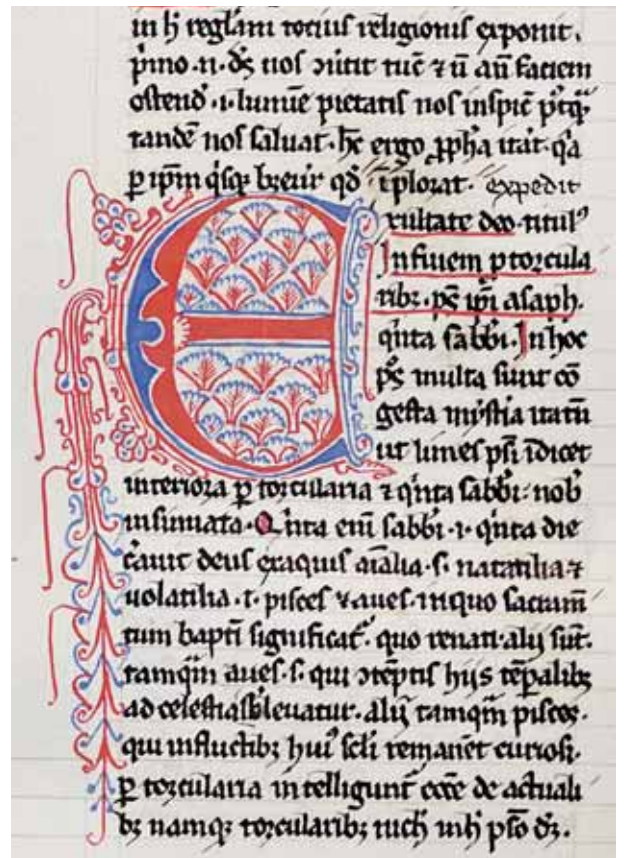 in hͥ regl̄am tocius religionis exponit.
p̄mo .n. d̄s nos
ostend̄ .i. lumīe pietatis nos inspic̄
tandē nos saluat. hͨ ergo ꝓph̄a
ꝑ ip̄m qͥsqꝫ breuit̄ qd̄ īplorat. expedit
Exultate deo. titulꝰ
In finem ꝓ torcula
ribꝫ. ps̄ ip̄i asaph.
qͥnta sabb̄i. In hoc
ps̄ multa sunt cō
gesta
ut limes ps̄i īdicet
interiora ꝑ torcularia ⁊ qͥnta sabb̄i. nob̄
insinuata. Qͥnta eni᷒ sabb̄i .i. qͥnta die
c̄auit deus ex aquis aīalia .s. natatilia ⁊
uolatilia .i. pisces ⁊ aues. in quo sacram̄
tum bapt̄i significat᷑. quo renati. alij sūt.
tamqͣm aues .s. qui ɔtēptis hijs tēpalibꝫ
ad celestia sb̄leuātur. alij tamqͣm pisces.
qui in fluctibꝫ huiꝰ sc̄li remanēt curiosi.
ꝑ torcularia intelligunt᷑ ecc̄e de actuali
bꝫ namqꝫ torcularibꝫ